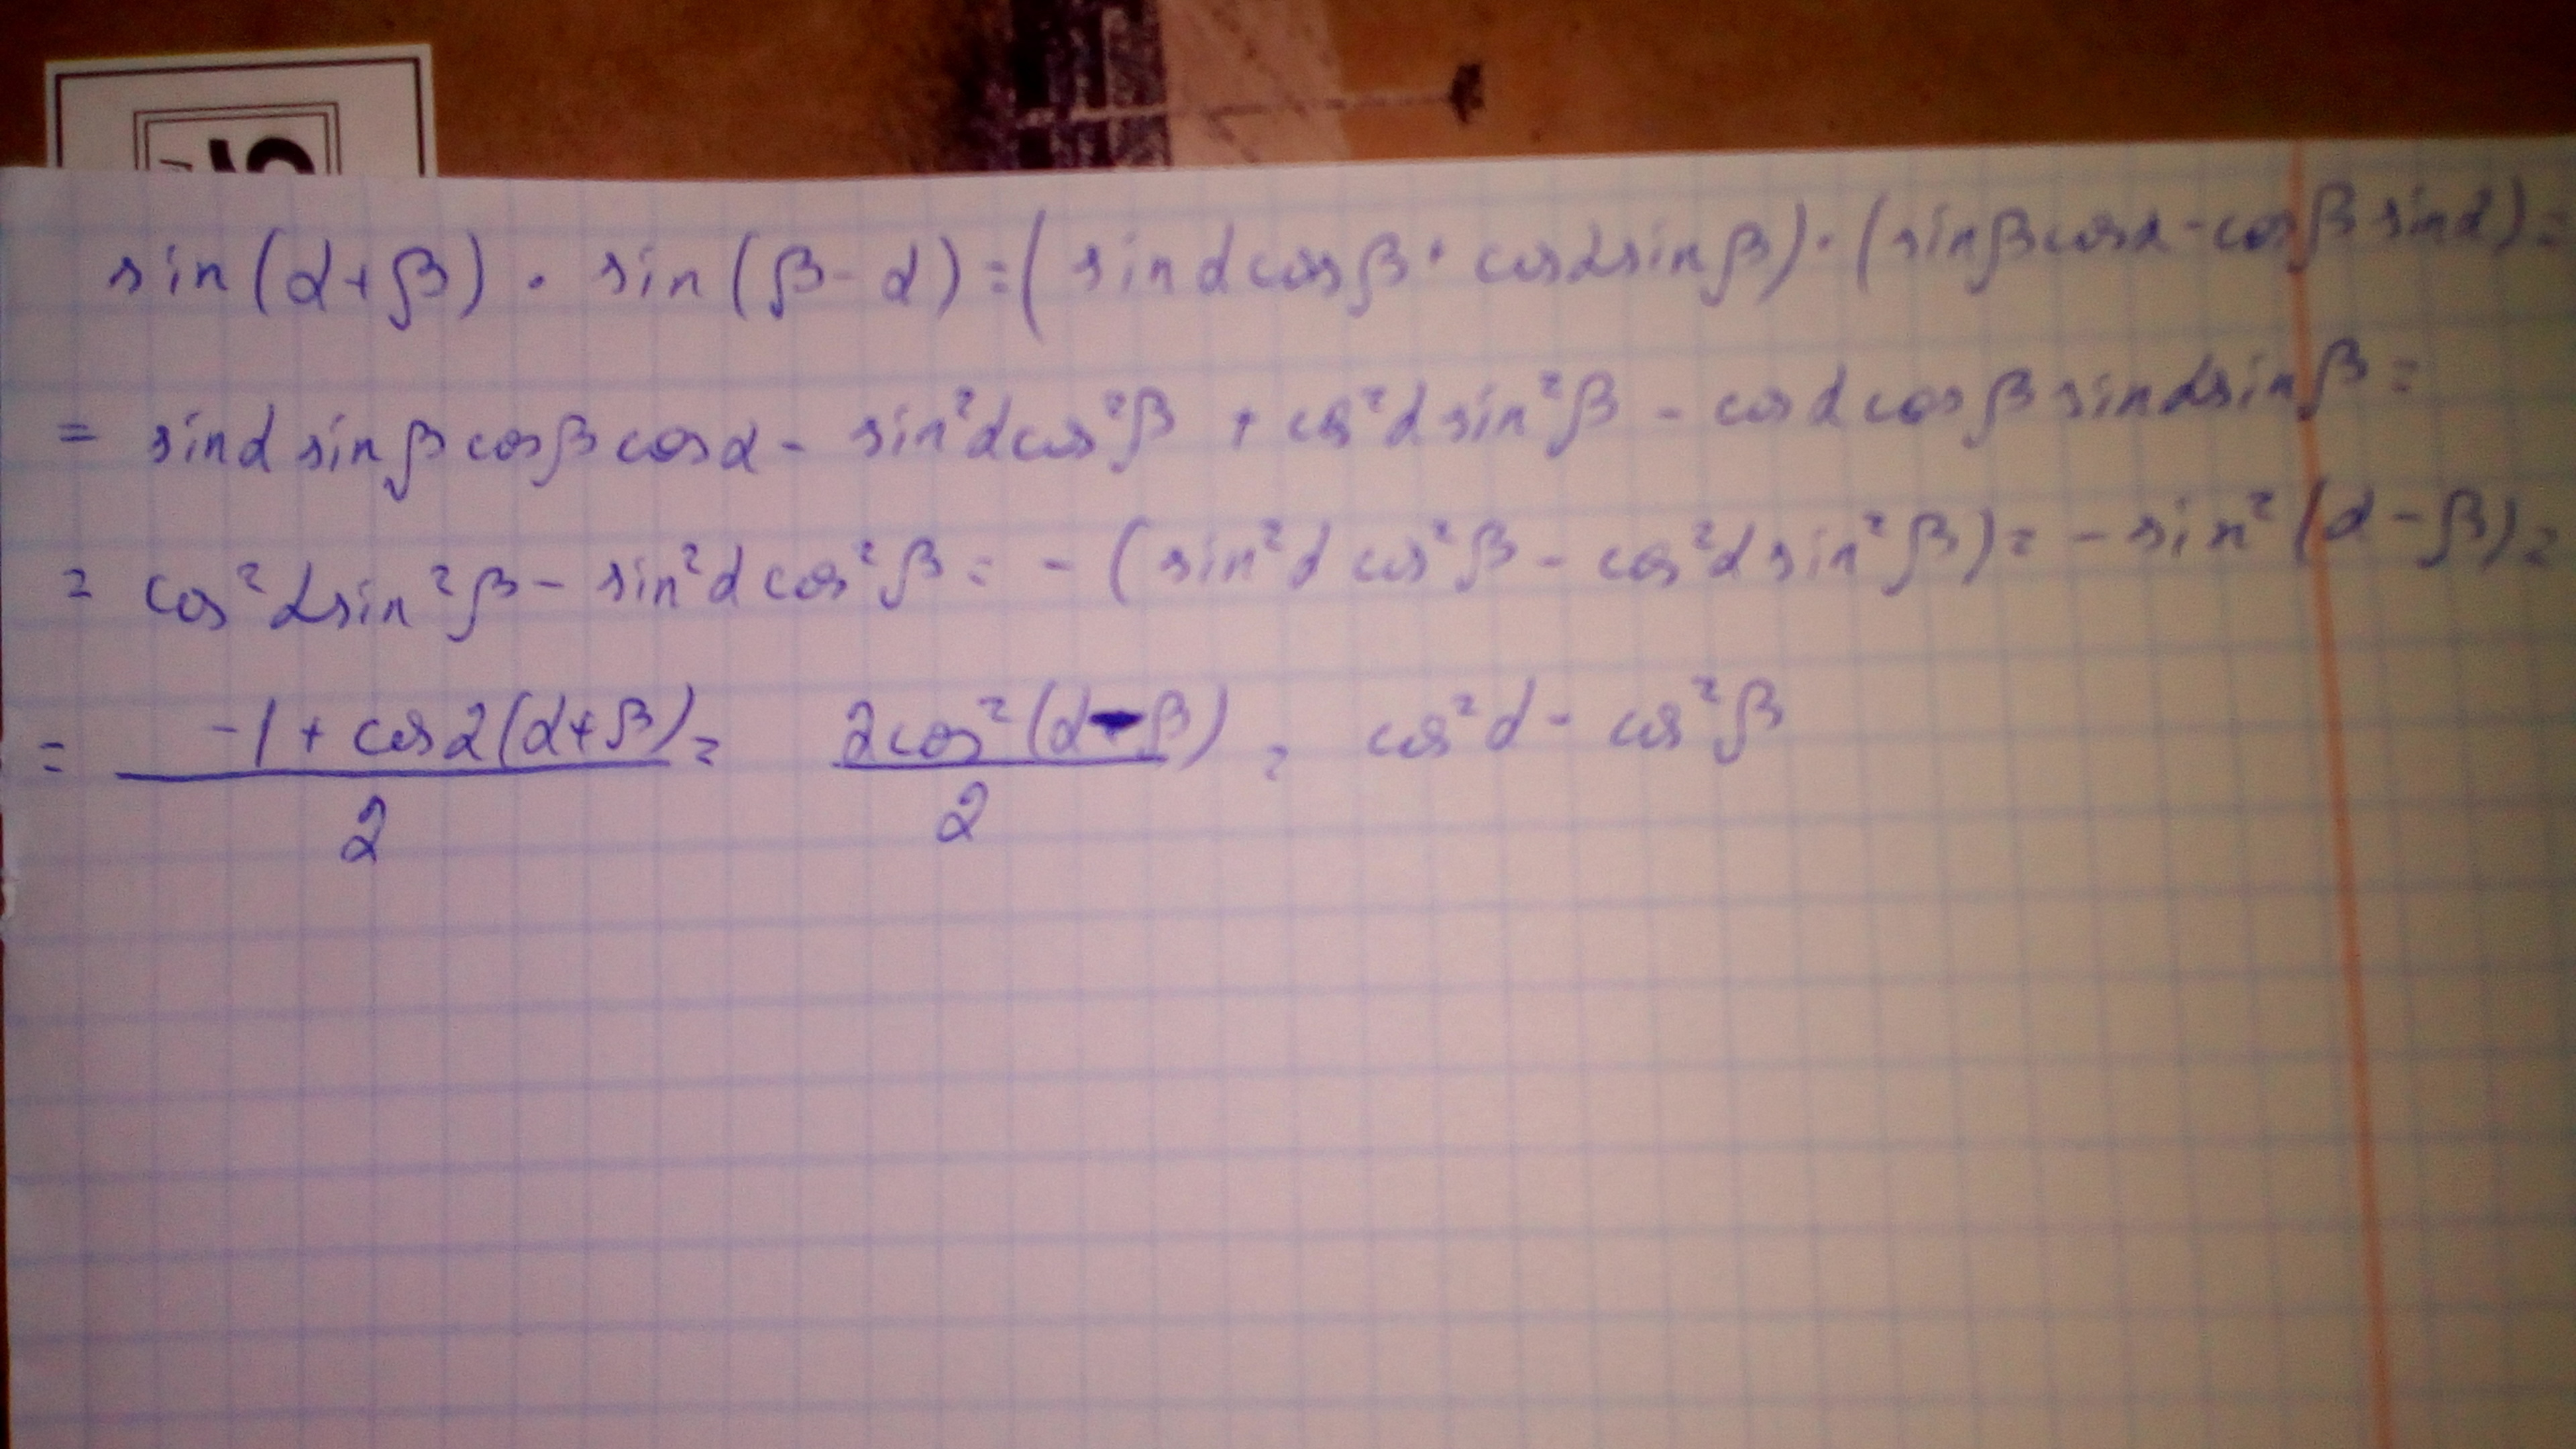 sin(α+β) · sin(β-α) = (sinα cosβ + cosα sinβ) · (sinβ cosα - cosβ sinα) =
= sinα sinβ cosβ cosα - sin²α cos²β + cos²α sin²β - cosα cosβ sinα sinβ =
= cos²α sin²β - sin²α cos²β = - (sin²α cos²β - cos²α sin²β) = - sin²(α-β) =
= (-1 + cos2(α+β))/2 = (2cos²(α-β))/2 = cos²α - cos²β